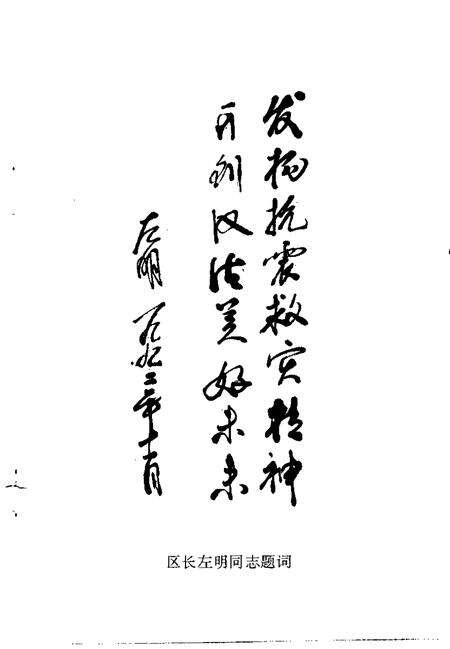 发扬抗震救灾精神
开创汉沽美好未来
左明 一九九二年十月
区长左明同志题词